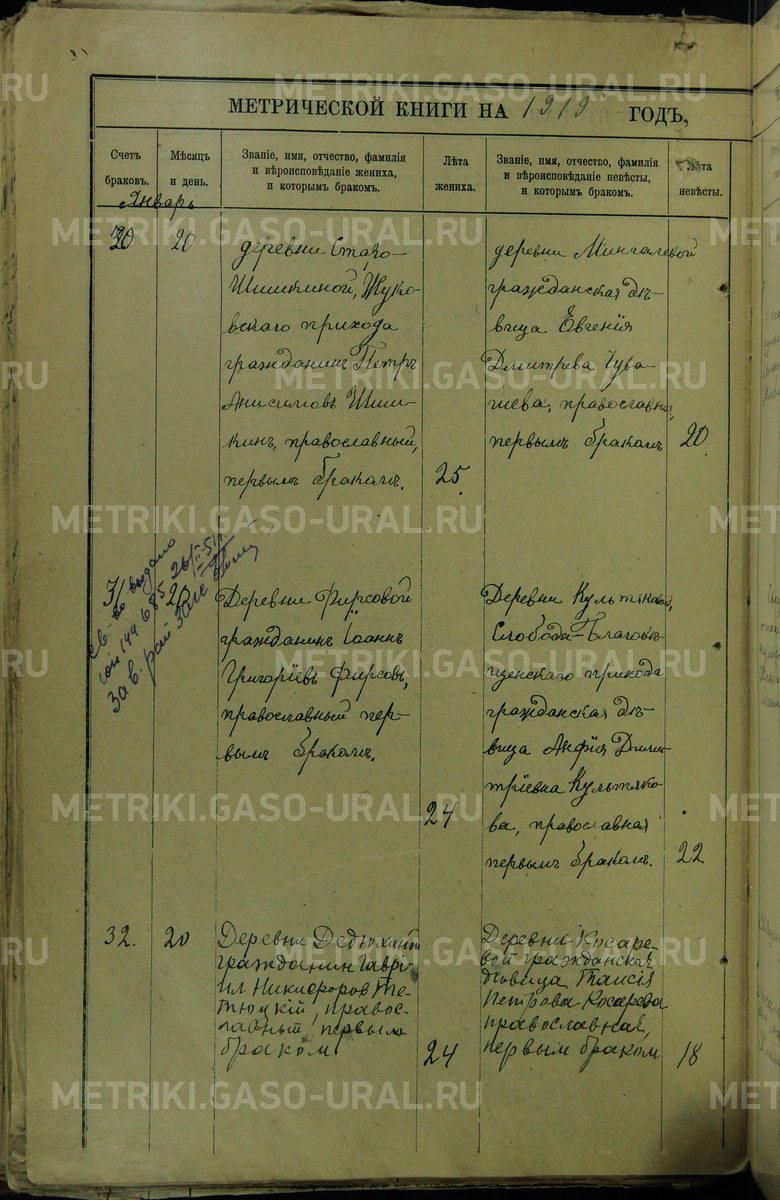 МЕТРИЧЕСКОЙ КНИГИ НА 1919 ГОДЪ,
Счетъ браковъ.
Мѣсяцъ и день.
Званіе, имя, отчество, фамилія
и вѣроисповѣданіе жениха,
и которымъ бракомъ.
Лѣта жениха.
Званіе, имя, отчество, фамилія
и вѣроисповѣданіе невѣсты,
и которымъ бракомъ.
Лѣта невѣсты.
Январь
30
20
деревни Старо-
Шишкиной, Жуко-
вскаго прихода
гражданинъ Петръ
Анисимовъ Шиш-
кинъ, православный,
первымъ бракомъ.
25
деревни Мингалевой
гражданская дѣ-
вица Евгенія
Дмитрева Чува-
шева, православная,
первымъ бракомъ
20
св-во выдано
26/II-51 г.
Зав. рай ЗАГС
31
20
Деревни Фирсовой
гражданинъ Іоаннъ
Григоріевъ Фирсовъ,
православный пер-
вымъ бракомъ.
24
Деревни Культяковой,
Слобода-Благовѣ-
щенскаго прихода
гражданская дѣ-
вица Анфія Дими-
тріевна Культяко-
ва, православная
первымъ бракомъ.
22
32.
20
Деревни Дедюхиной
гражданин Гаврі-
ил Никифоров Те-
тюцкій, правос-
лавный, первым
браком
24
Деревни Косаре-
вой гражданская
дѣвица Таисія
Петрова Косарева
православная,
первым браком
18
METRIKI.GASO-URAL.RU